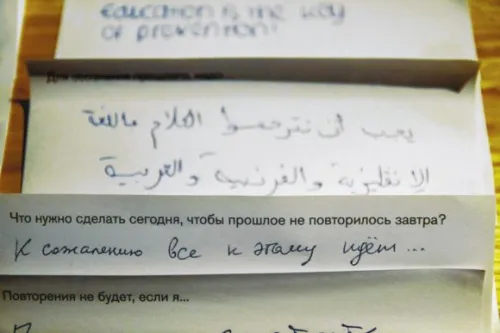 Education is the
of prevention!
Для
يجب ان تترجموا الكلام باللغة
الإنقليزية والفرنسية والعربية
Что нужно сделать сегодня, чтобы прошлое не повторилось завтра?
К сожалению все к этому идёт...
Повторения не будет, если я...